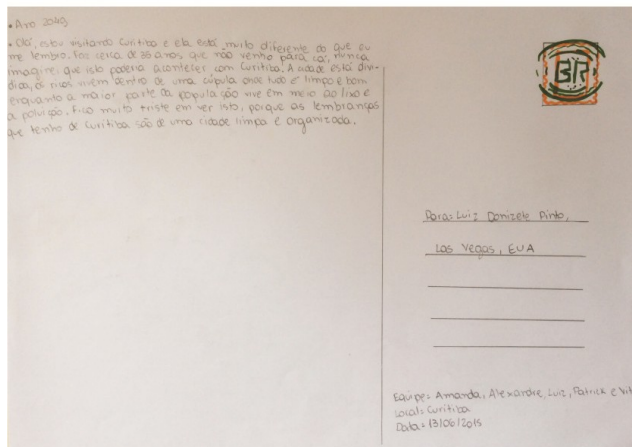 • Ano 2049
• Olá, estou visitando Curitiba e ela está muito diferente do que eu
me lembro. Faz cerca de 35 anos que não venho para cá, nunca
imaginei que isto poderia acontecer com Curitiba. A cidade está divi-
dida, os ricos vivem dentro de uma cúpula onde tudo é limpo e bom
enquanto a maior parte da população vive em meio ao lixo e
a poluição. Fico muito triste em ver isto, porque as lembranças
que tenho de Curitiba são de uma cidade limpa e organizada.
BR
Para: Luiz Donizete Pinto,
Las Vegas, EUA
Equipe: Amanda, Alexandre, Luiz, Patrick e Vit
Local: Curitiba
Data: 13/06/2015